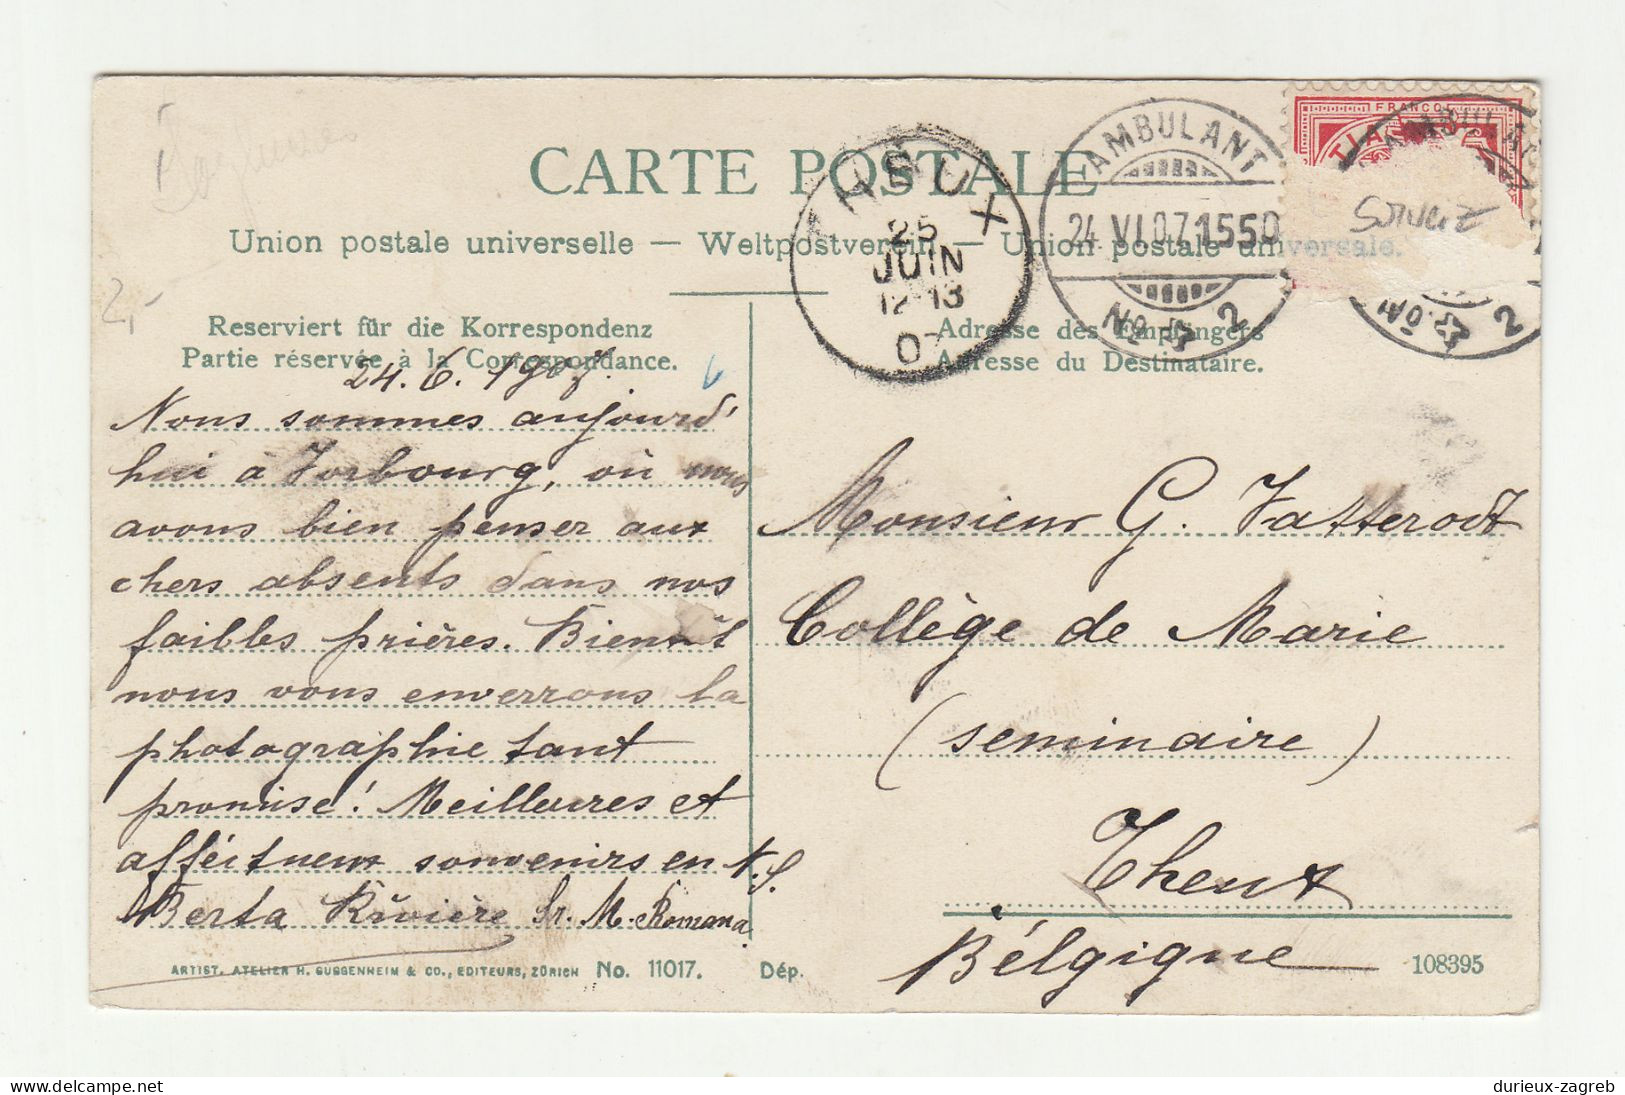 CARTE POSTALE
Union postale universelle — Weltpostverein — Union postale universelle.
AMBULANT
24 VI 07 1550
No 2
FRANCO
AMBULA
2
25
JUIN
12-13
07
Reserviert für die Korrespondenz
Partie réservée à la Correspondance.
Adresse des Empfängers
Adresse du Destinataire.
24. 6. 1907.
Nous sommes aujourd'
hui à Torbourg, où nous
avons bien penser aux
chers absents dans nos
faibles prières. Bientôt
nous vous enverrons la
photographie tant
promise! Meilleures et
affectueux souvenirs en N.S.
Berta Rivière Sr. M. Romana
Monsieur G.
Collège de Marie
(seminaire)
Theux
Bélgique
ARTIST. ATELIER H. GUGGENHEIM & CO., EDITEURS, ZÜRICH No. 11017. Dép.
108395
durieux-zagreb